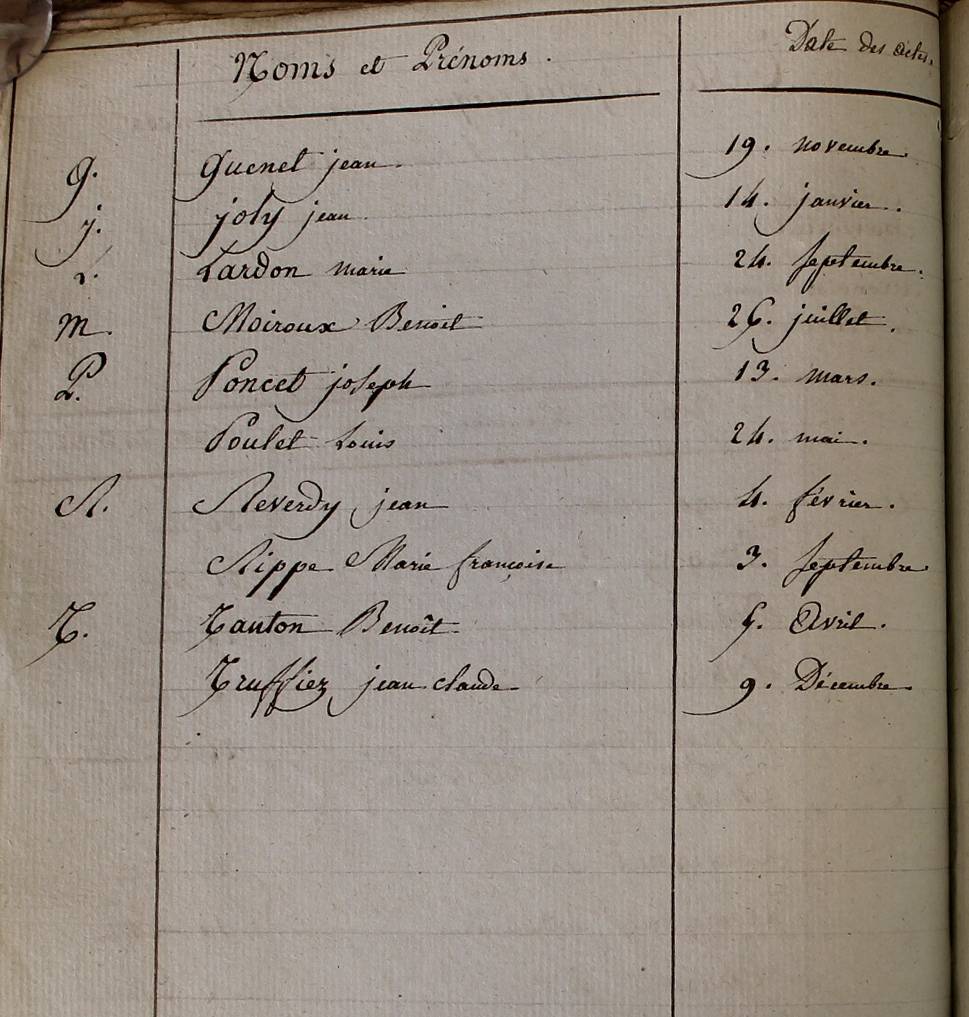 Noms et Prénoms. Date des actes.
G. Guenet jean. 19. novembre.
j. joly jean. 14. janvier.
L. Lardon marie 24. septembre.
M. Moiroux Benoit 26. juillet.
P. Poncet joseph 13. mars.
Poulet Louis 24. mai.
R. Reverdy jean 4. février.
Rippe Marie françoise 3. septembre
T. Tanton Benoît. 5. Avril.
Truffiez jean claude. 9. Décembre.